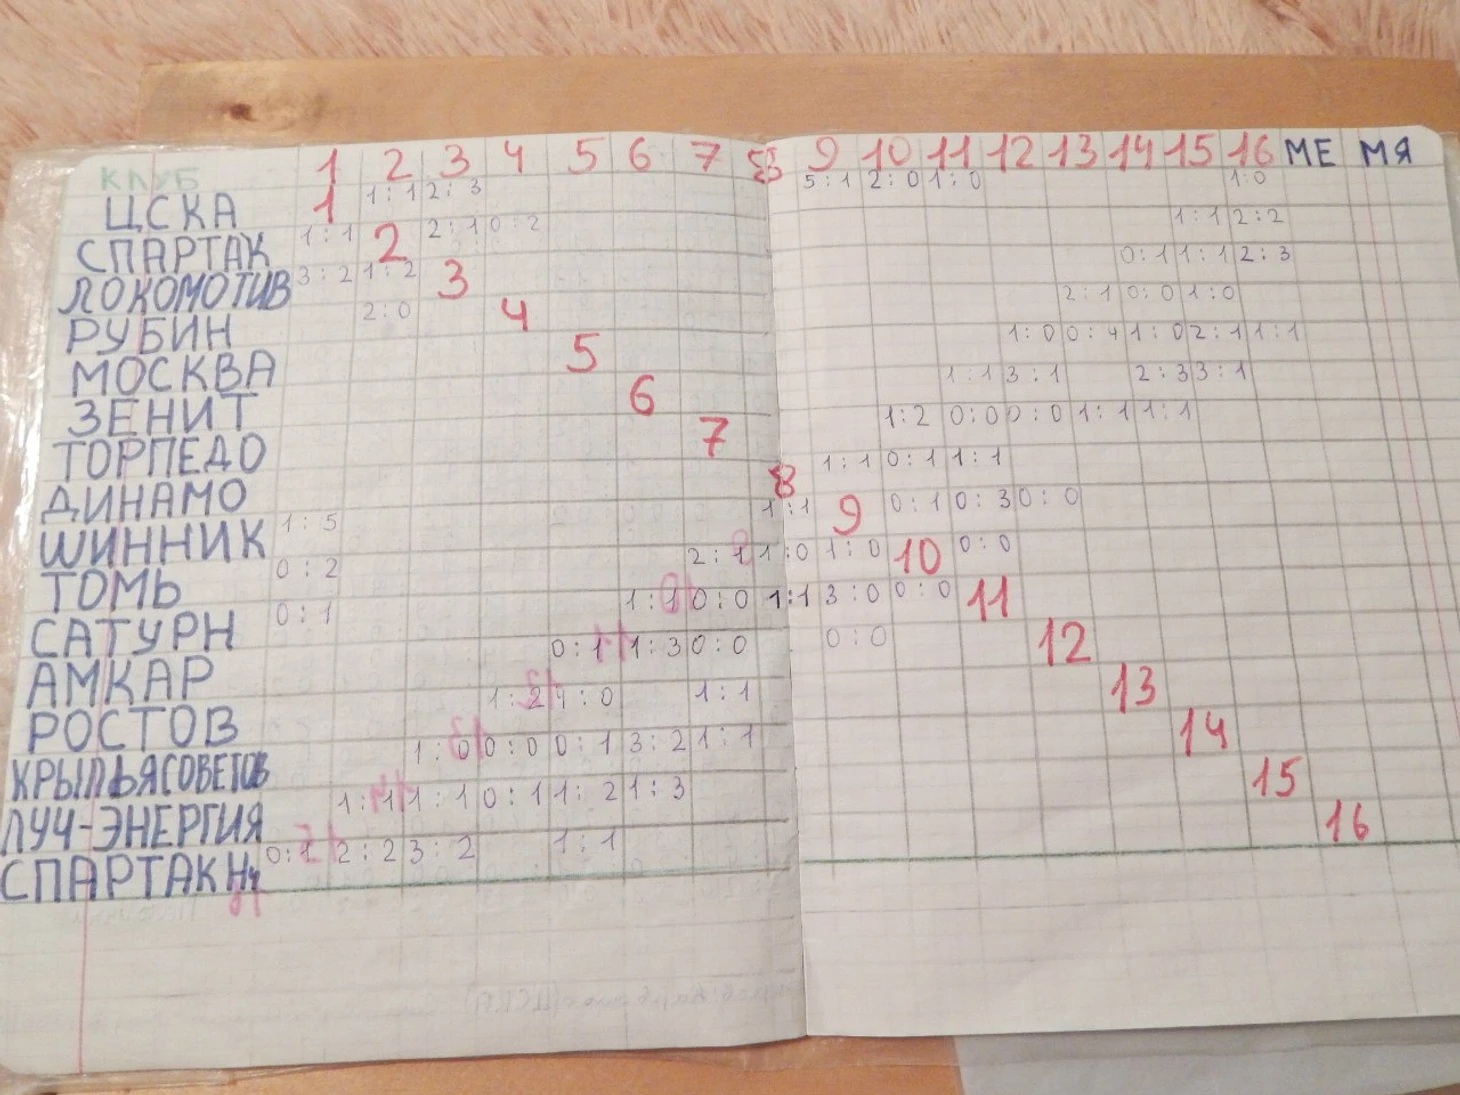 КЛУБ 1 2 3 4 5 6 7 8 9 10 11 12 13 14 15 16 МЕ МЯ
ЦСКА 1 1:1 2:3 5:1 2:0 1:0 1:0
СПАРТАК 1:1 2 2:1 0:2 1:1 2:2
ЛОКОМОТИВ 3:2 1:2 3 0:1 1:1 2:3
РУБИН 2:0 4 2:1 0:0 1:0
МОСКВА 5 1:0 0:4 1:0 2:1 1:1
ЗЕНИТ 6 1:1 3:1 2:3 3:1
ТОРПЕДО 7 1:2 0:0 0:0 1:1 1:1
ДИНАМО 8 1:1 0:1 1:1
ШИННИК 1:5 1:1 9 0:1 0:3 0:0
ТОМЬ 0:2 2:1 1:0 1:0 10 0:0
САТУРН 0:1 1:1 0:0 1:1 3:0 0:0 11
АМКАР 0:1 1:3 0:0 0:0 12
РОСТОВ 1:2 4:0 1:1 13
КРЫЛЬЯСОВЕТОВ 1:0 0:0 0:1 3:2 1:1 14
ЛУЧ-ЭНЕРГИЯ 1:1 1:1 0:1 1:2 1:3 15
СПАРТАКНЧ 0:1 2:2 3:2 1:1 16